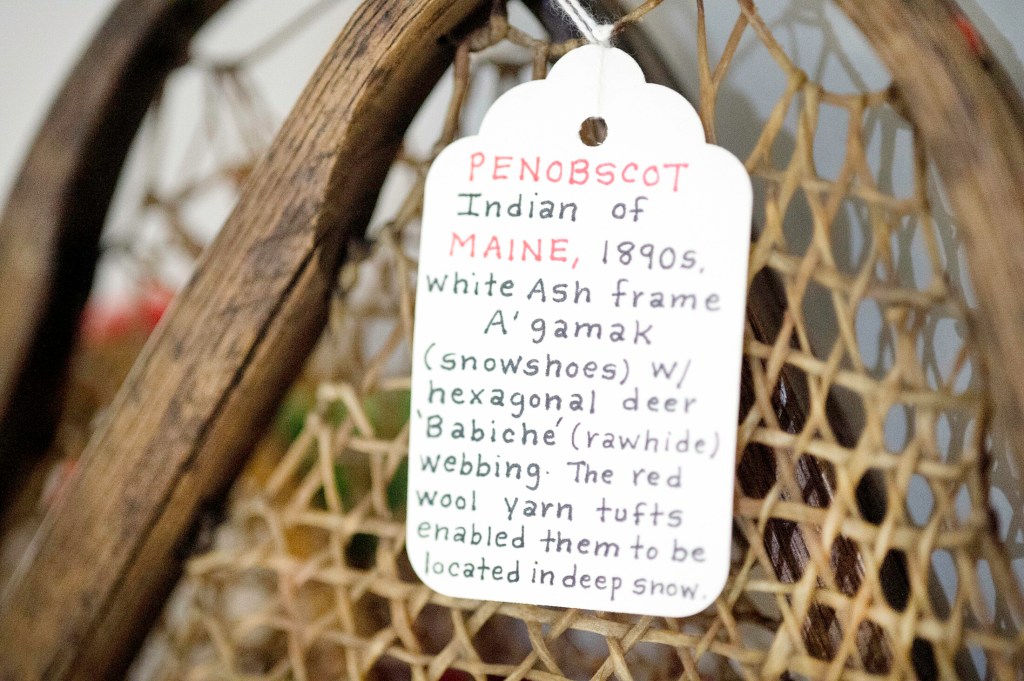 PENOBSCOT
Indian of
MAINE, 1890s.
white Ash frame
A'gamak
(snowshoes) w/
hexagonal deer
'Babiche' (rawhide)
webbing. The red
wool yarn tufts
enabled them to be
located in deep snow.